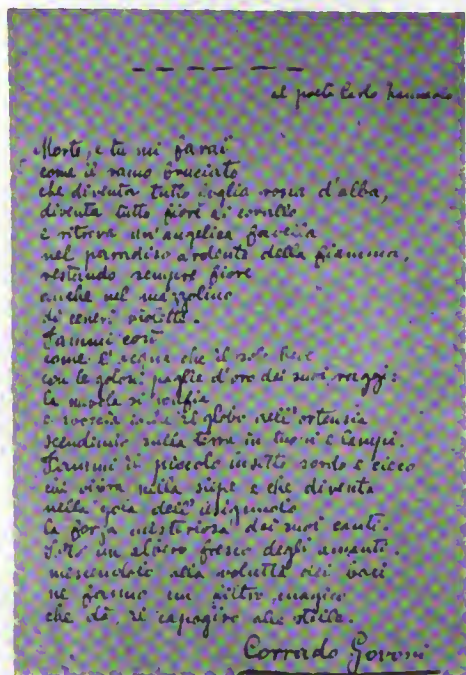 al poeta Carlo
Morte, e tu mi farai
come il ramo bruciato
che diventa tutto foglia rossa d'alba,
diventa tutto fiore di corallo
e ritorna un'angelica favella
nel paradiso ardente della fiamma,
restando sempre fiore
anche nel mazzolino
di ceneri violette.
Fammi così
come l'acqua che il sole beve
con le golose paglie d'oro dei suoi raggi:
la nuvola si gonfia
e rovescia il globo dell'ortensia
scendiamo sulla terra in tuoni e lampi.
Fammi il piccolo insetto sordo e cieco
che diventa
nella gola dell'usignuolo
la forza misteriosa dei suoi canti.
un albero fresco degli amanti.
mescendolo alla voluttà dei baci
ne fanno un filtro magico
che dà, il capogiro alle stelle.
Corrado Govoni